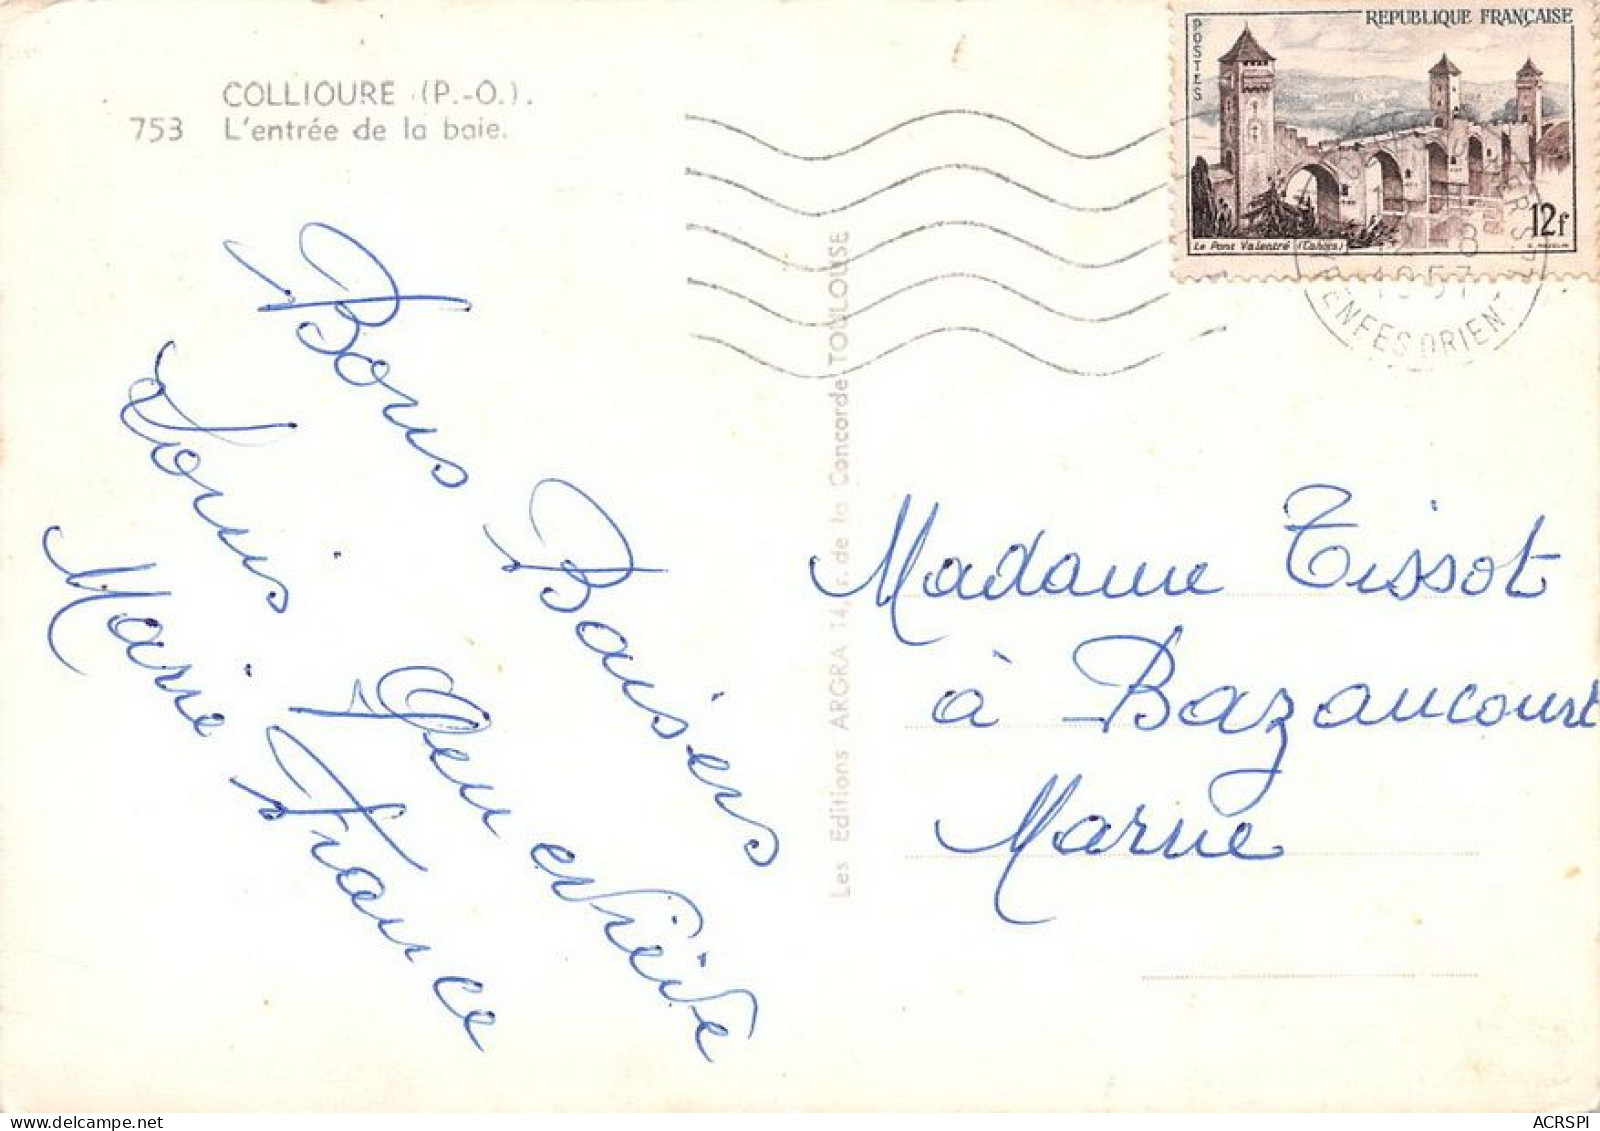 COLLIOURE (P.-O.).
753 L'entrée de la baie.
REPUBLIQUE FRANÇAISE
POSTES
Le Pont Valentré (Cahors)
12f
1957
PYRENEES ORIENT
Bons Baisers
Louis Genevieve
Marie France
Les Editions ARGRA 14, r. de la Concorde TOULOUSE
Madame Tissot
à Bazancourt
Marne
ACRSPI